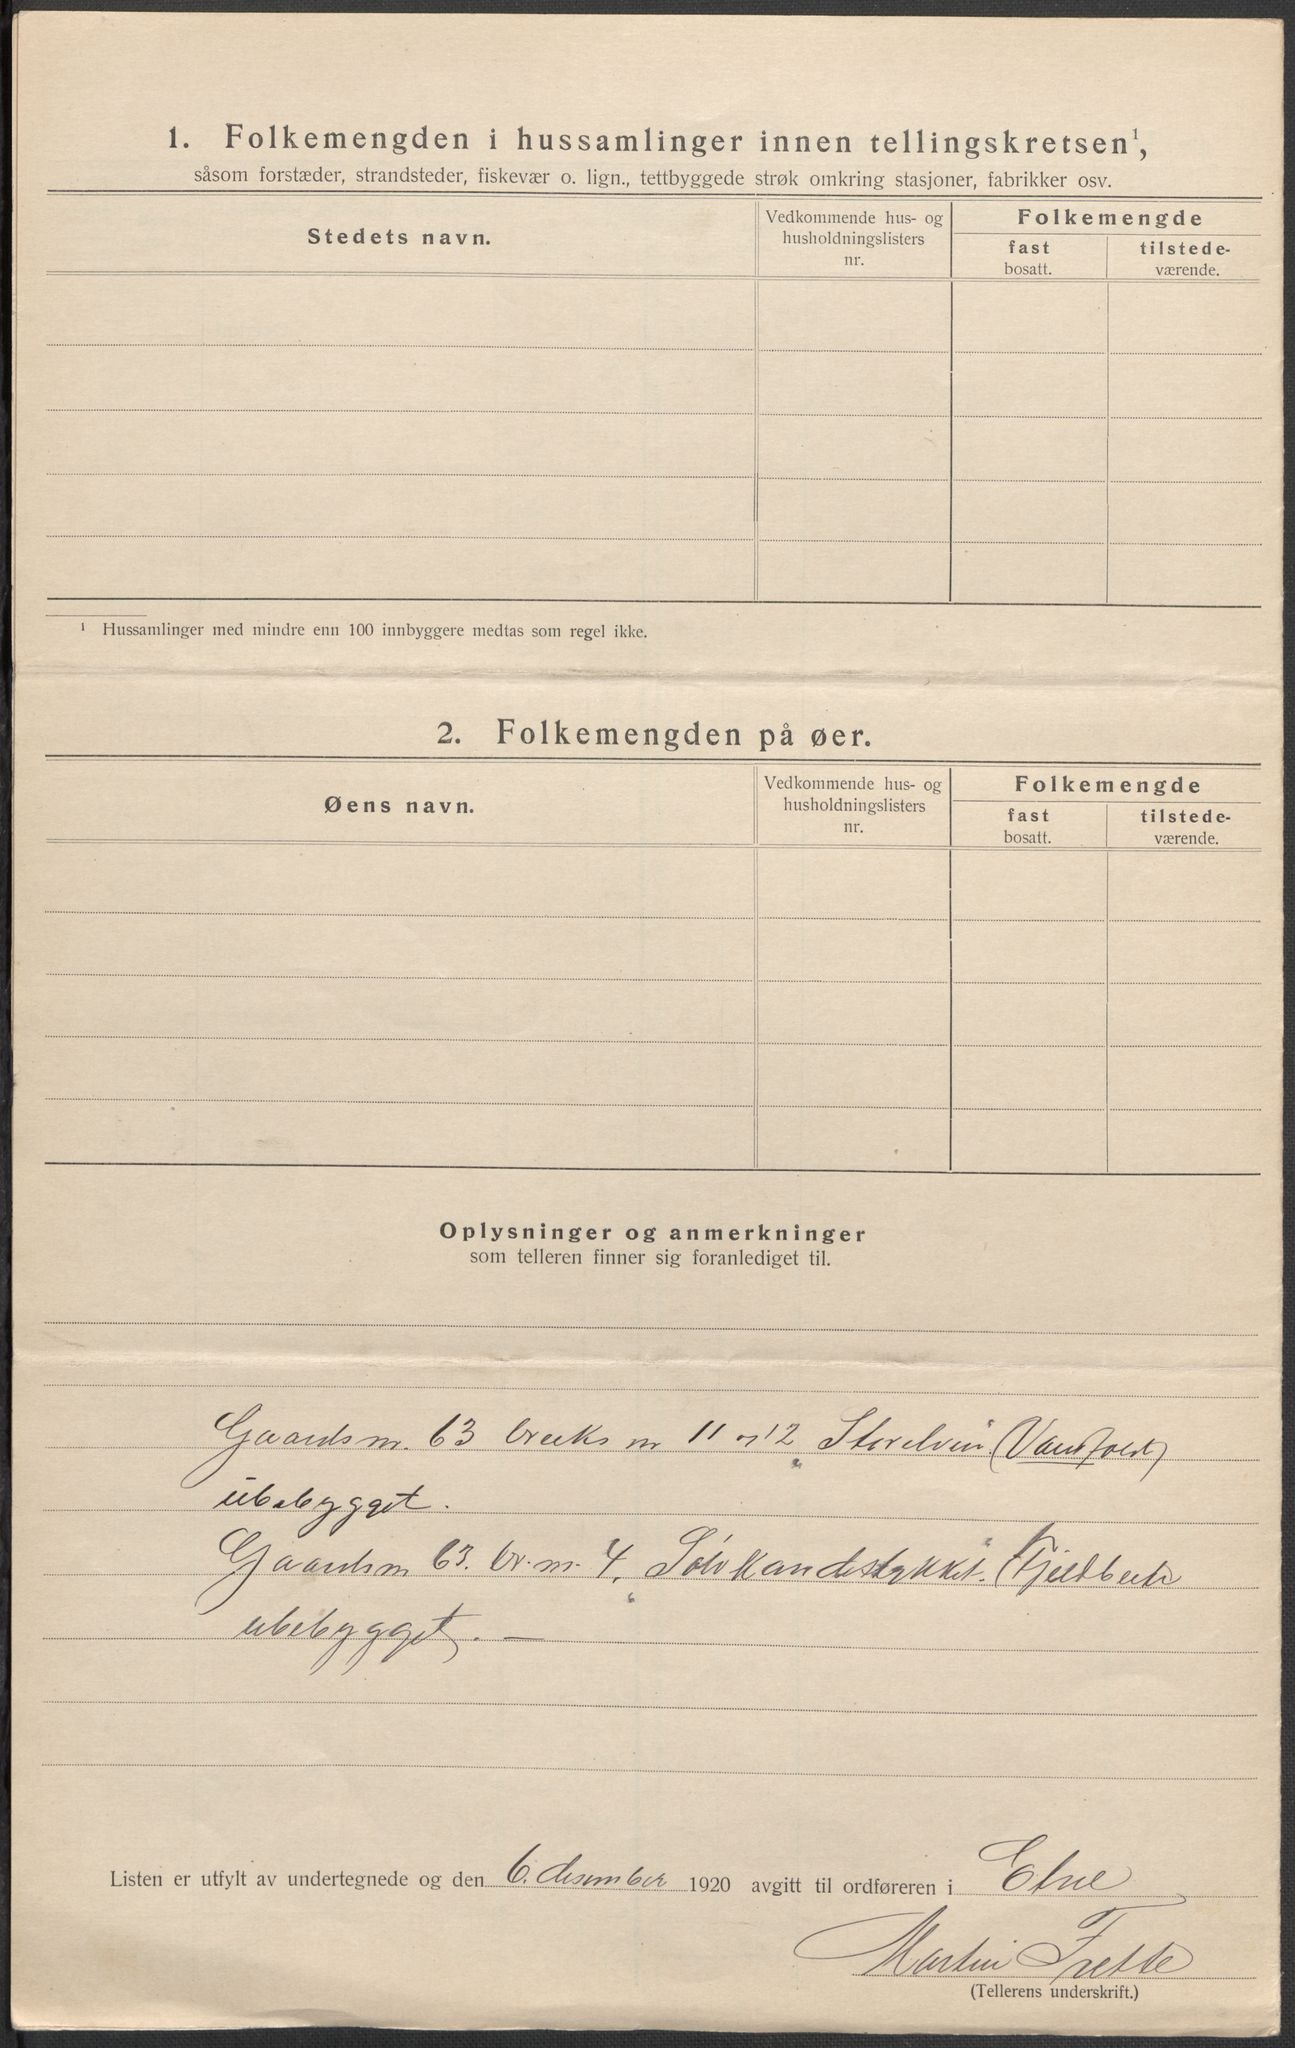 1. Folkemengden i hussamlinger innen tellingskretsen¹,
såsom forstæder, strandsteder, fiskevær o. lign., tettbyggede strøk omkring stasjoner, fabrikker osv.
Stedets navn.
Vedkommende hus- og
husholdningslisters
nr.
Folkemengde
fast
bosatt.
tilstede-
værende.
¹ Hussamlinger med mindre enn 100 innbyggere medtas som regel ikke.
2. Folkemengden på øer.
Øens navn.
Vedkommende hus- og
husholdningslisters
nr.
Folkemengde
fast
bosatt.
tilstede-
værende.
Oplysninger og anmerkninger
som telleren finner sig foranlediget til.
Gaardsnr. 63 bruks nr 11 og 12
ubebygget.
Gaardsnr 63. br. nr. 4.
ubebygget. —
Listen er utfylt av undertegnede og den 6. desember 1920 avgitt til ordføreren i Etne
Martin Frette
(Tellerens underskrift.)